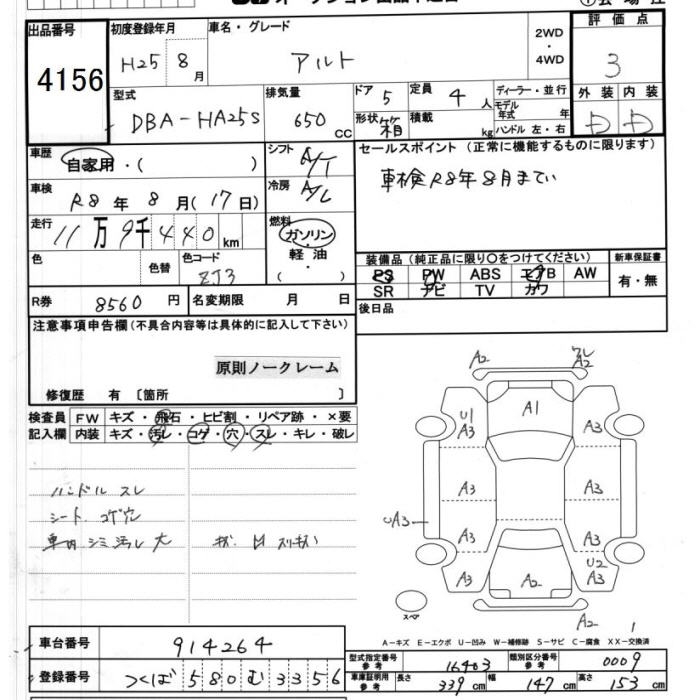 出品番号
4156
初度登録年月
H25 8月
車名・グレード
アルト
2WD
・
4WD
評価点
3
型式
DBA-HA25S
排気量
650 CC
ドア 5
定員 4 人
形状 箱
積載 kg
ディーラー・並行
モデル年式 年
ハンドル 左・右
外装 内装
D D
車歴
自家用・( )
シフト A/T
セールスポイント (正常に機能するものに限ります)
車検R8年8月まで
車検
R8年8月(17日)
冷房 A/C
走行
11万9千440km
燃料
ガソリン
・
軽油
・
( )
色
色替
色コード
ZJ3
装備品 (純正品に限り○をつけてください)
新車保証書
PS PW ABS エアB AW
有・無
SR ナビ TV カワ
R券 8560円
名変期限 月 日
後日品
注意事項申告欄(不具合内容等は具体的に記入して下さい)
原則ノークレーム
修復歴 有 〔箇所 〕
検査員 FW キズ・飛石・ヒビ割・リペア跡・×要
記入欄 内装 キズ・汚レ・コゲ・穴・スレ・キレ・破レ
ハンドル スレ
シート コゲ穴
車内 シミ汚レ大
A2
A2
U1
A3
A1
A3
A3
A3
UA3
A3
A3
U2
A3
A2
A3
A2
1
スペア
A-キズ E-エクボ U-凹み W-補修跡 S-サビ C-腐食 XX-交換済
車台番号 914264
型式指定番号 参考 16403
類別区分番号 参考 0009
登録番号 つくば 580 む 3356
車庫証明用 参考 長さ 339cm 幅 147cm 高さ 153cm